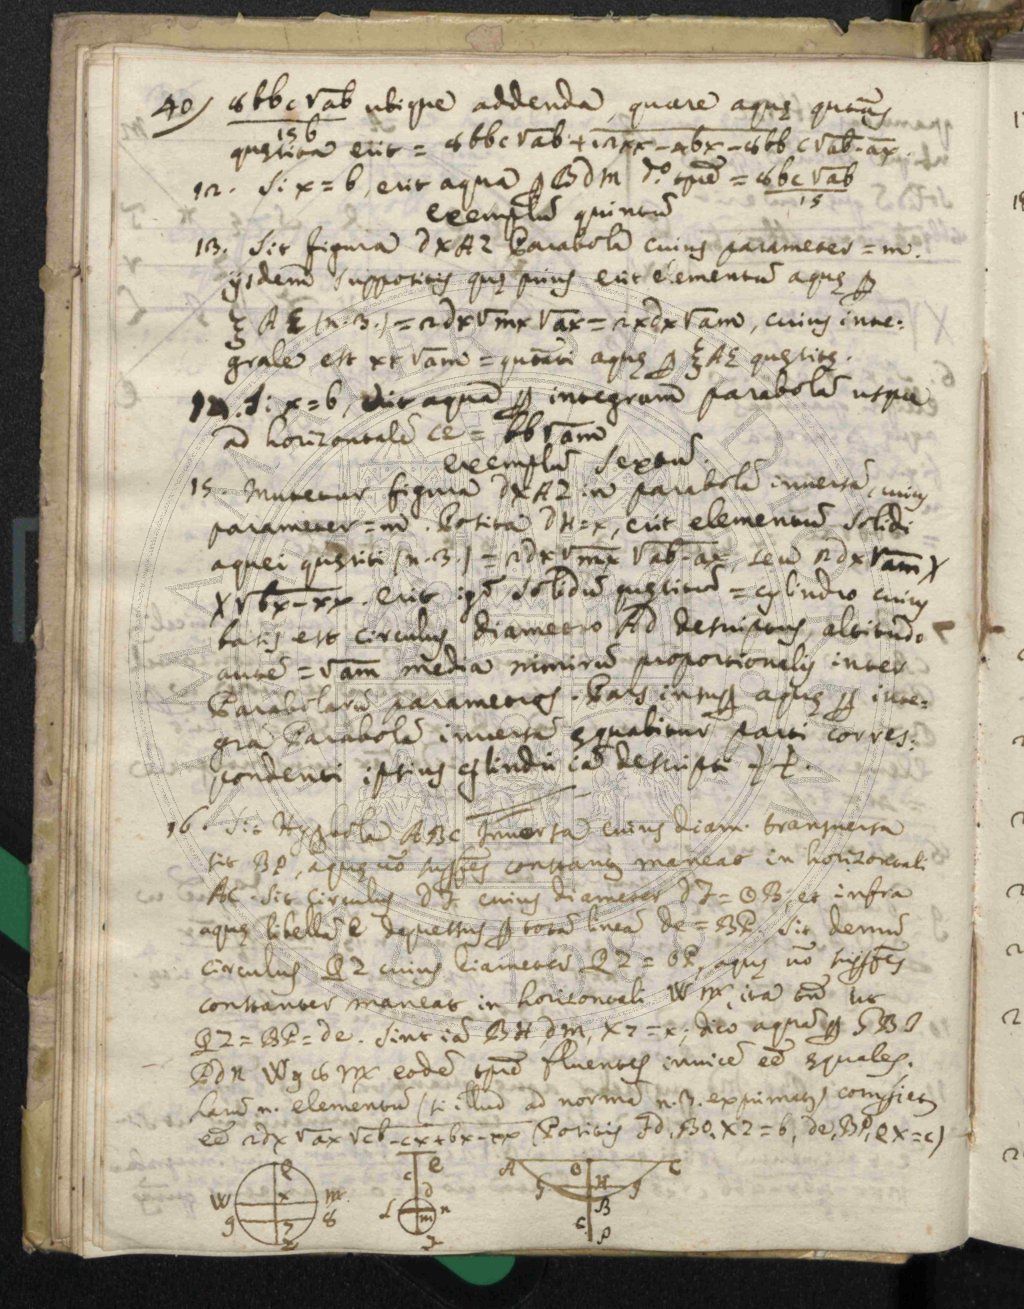 40) 8bbc√ab ubique addenda, quare aquę quãtitas
15b
quęsita erit = 8bbc√ab + 12xx - 4bx - 8bb c√ab-ax.
12. Si x=b, erit aqua ꝑ BdM do tpẽ = 8bc√ab
15
exemplũ quintũ
13. Sit figura DXAZ Parabola cuius parameter = m.
ijsdem suppositis quę prius erit elementũ aquę ꝑ
ξAΣ (n. 3.) = 2dx√mx√ax = 2xdx√am, cuius inte=
grale est xx√am = quãtitati aquę ꝑ ξAΣ quęsitę.
14. Si x=b, erit aqua ꝑ integram parabolã usque
ad horizontalẽ CE = bb√am
exemplũ sextũ.
15. Mutetur figura DXAZ in parabolã inversã, cuius
parameter = m. Posita DH=x, erit elementũ solidi
aquei quęsiti (n. 3.) = 2dx√mx √ab-ax, seu 2dx√am X
X√bx-xx. erit igr̃ solidũ quęsitũ = cylindro cuius
basis est circulus diametro AD descriptus, altitudo
autẽ = √am media nimirũ proportionalis inter
Parabolarũ parametros. Pars insuꝑ aquę ꝑ inte=
gra Parabolã inversã ęquabitur parti corres=
pondenti ipsius cylindri iã descripti.
16. Sit Hyperbola ABC inversa cuius diam. transversa
sit BP, aquę vo suꝑficies constans maneat in horizontali
AC. Sit circulus DI cuius diameter DI = OB, et infra
aquę libellã e depressus ꝑ totã lineã de = BP. Sit demũ
circulus QZ cuius diameter QZ = OP, aquę vo suꝑficies
constanter maneat in horizontali W M, ita tñ ut
QZ = BP = de. Sint iã BH dM, X7 = x; dico aquã ꝑ
eodẽ tpẽ fluentes invicẽ eẽ ęquales.
harũ n. elementũ (si illud ad normã n. 3. exprimatur) comꝑiet
eẽ 2dx√ax√cb-cx+bx-xx (Positis Id, BO, XZ = b, de, BP, QX = c)
Q e A O C
W x M c d g H g
g 8 L m n B
7 I c
Z P